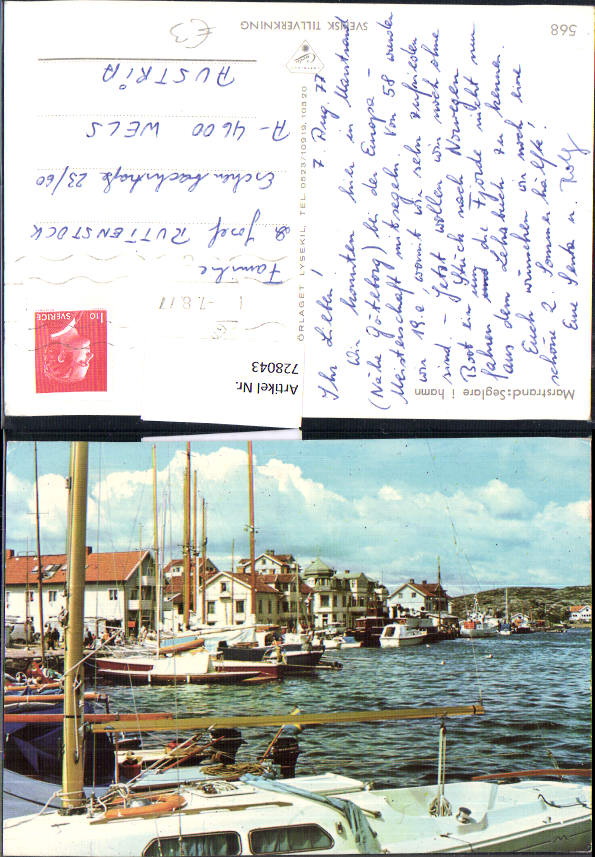 568
SVENSK TILLVERKNING
€3
7. Aug. 77
Ihr Lieben!
Wir konnten hier in Marstrand
(Nähe Göteborg) bei der Europa-
Meisterschaft mitsegeln. Von 58 wurden
wir 19.e womit wir sehr zufrieden
sind. - Jetzt wollen wir noch ohne
Boot ein Stück nach Norwegen
fahren um die Fjorde nicht nur
aus dem Lehrbuch zu kennen.
Euch wünschen wir noch eine
schöne 2. Sommerhälfte!
Eure Senta u. Rolf
Marstrand: Seglare i hamn
ÖRLAGET LYSEKIL, TEL. 0523/10919, 10320
Familie
Josef RUTTENSTOCK
Eschenbachstraße 23/60
A-4600 WELS
AUSTRIA
SVERIGE
110
-7.8.77
Artikel Nr.
728043